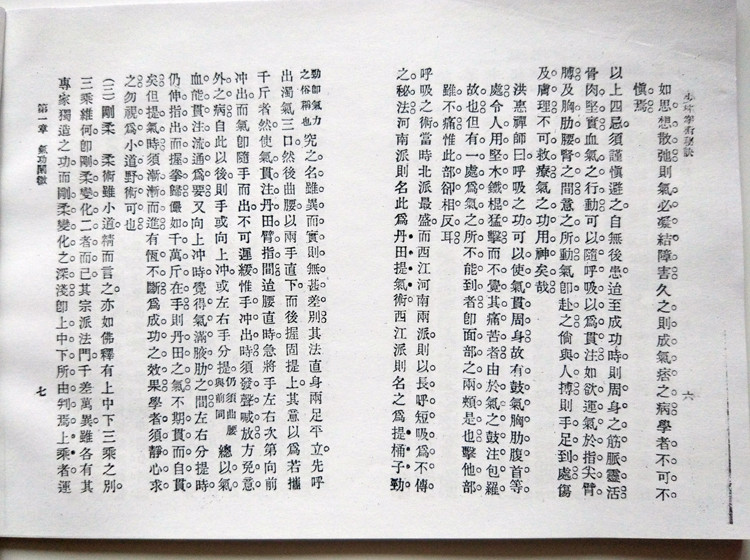 少林拳術秘訣
六
如思想散弛則氣必凝結障害久之則成氣痞之病學者不可不
愼焉
以上四忌須謹愼避之自無後患迨至成功時則周身之筋脈靈活
骨肉堅實血氣之行動可以隨呼吸以爲貫注如欲運氣於指尖臂
膊及胸肋腰腎之間意之所動氣卽赴之倘與人搏則手足到處傷
及膚理不可救療氣之功用神矣哉
洪惠禪師曰呼吸之功可以使氣貫周身故有鼓氣胸肋腹首等
處令人用堅木鐵棍猛擊而不覺其痛苦者由於氣之鼓注包羅
故也但有一處爲氣之所不能到者卽面部之兩頰是也擊他部
雖不痛惟此部卻相反耳
呼吸之術當時北派最盛而西江河南兩派則以長呼短吸爲不傳
之秘法河南派則名此爲丹田提氣術西江派則名之爲提桶子勁
勁卽氣力
之俗稱也
究之名雖異而實則無甚差別其法直身兩足平立先呼
出濁氣三口然後曲腰以兩手直下而後握固提上其意以爲若攜
千斤者然使氣貫注丹田臂指間迨腰直時急將手左右次第向前
冲出而氣卽隨手而出不可遲緩惟手冲出時須發聲喊放方免意
外之病自此以後則手或向上冲或左右手分提
仍須曲腰
與前同
總以氣
血能貫注流通爲要又向上冲時覺得氣滿腋肋之間左右分提時
仍伸指出而握拳歸儼如千萬斤在手則丹田之氣不期貫而自貫
矣但提氣時須漸漸而進有恆不斷爲成功之效果學者須靜心求
之勿視爲小道野術可也
(三)剛柔 柔術雖小道精而言之亦如佛釋有上中下三乘之別
三乘維何卽剛柔變化二者而已其宗派法門千差萬異雖各有其
專家獨造之功而剛柔變化之深淺卽上中下所由判焉上乘者運
第一章 氣功闡微
七